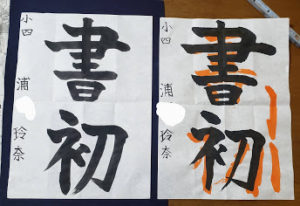 書初
小四
浦
玲奈
書初
小四
浦
玲奈